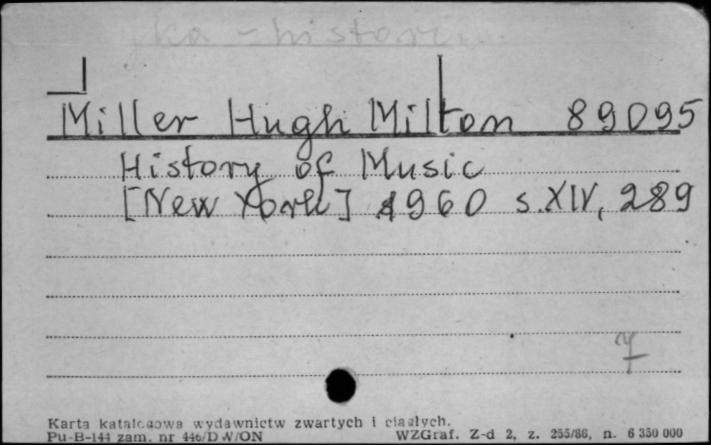 ka - histori
Miller Hugh Milton 89095
History of Music
[New York] 1960 s. XIV, 289
7
Karta katalogowa wydawnictw zwartych i ciągłych.
Pu-B-144 zam. nr 446/DW/ON WZGraf. Z-d 2, z. 255/86, n. 6 350 000